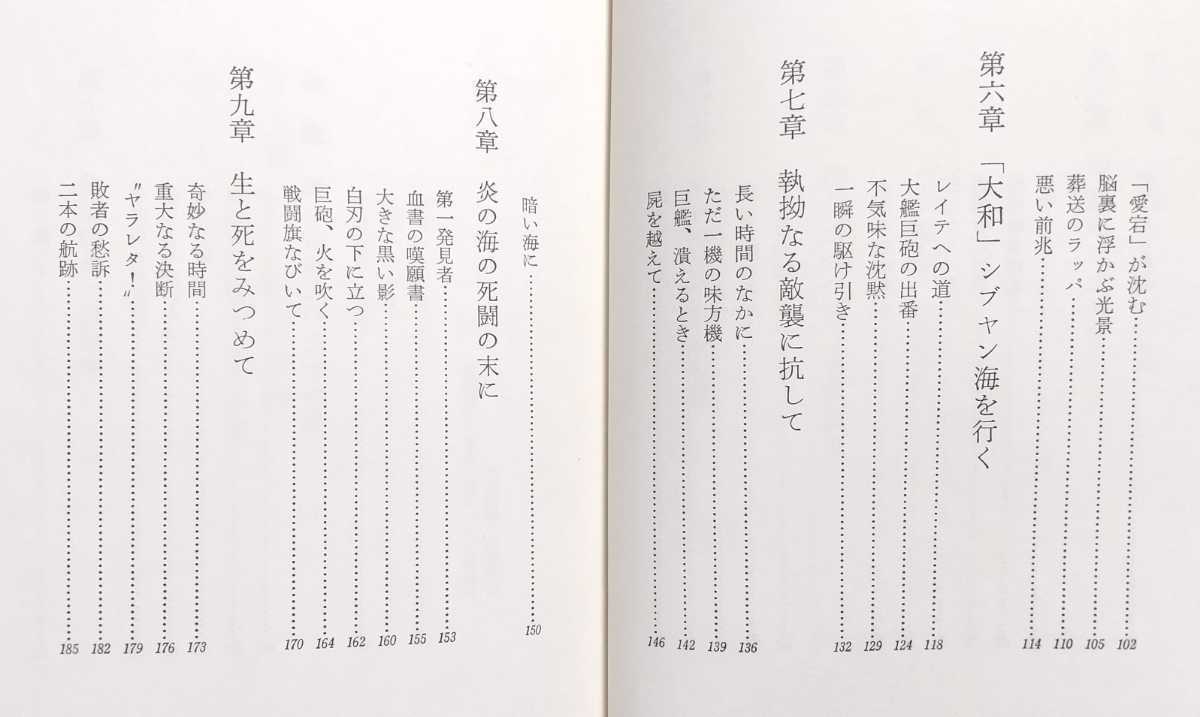 「愛宕」が沈む……102
脳裏に浮かぶ光景……105
葬送のラッパ……110
悪い前兆……114
第六章 「大和」シブヤン海を行く
レイテへの道……118
大艦巨砲の出番……124
不気味な沈黙……129
一瞬の駆け引き……132
第七章 執拗なる敵襲に抗して
長い時間のなかに……136
ただ一機の味方機……139
巨艦、潰えるとき……142
屍を越えて……146
暗い海に……150
第八章 炎の海の死闘の末に
第一発見者……153
血書の嘆願書……155
大きな黒い影……160
白刃の下に立つ……162
巨砲、火を吹く……164
戦闘旗なびいて……170
第九章 生と死をみつめて
奇妙なる時間……173
重大なる決断……176
〝ヤラレタ！〟……179
敗者の愁訴……182
二本の航跡……185